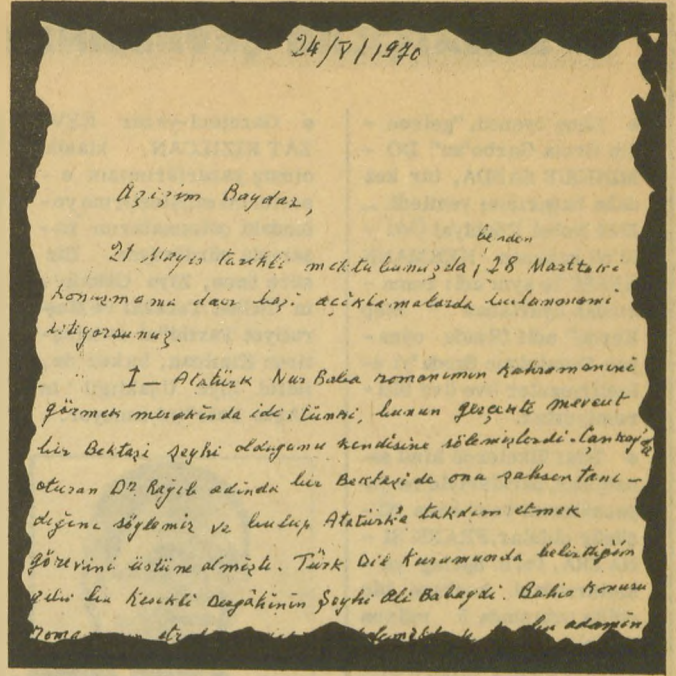 24/V/1970
Azizim Baydar,
benden
21 Mayıs tarihli mektubunuzda, 28 Marttaki
konuşmama dair bazı açıklamalarda bulunmamı
istiyorsunuz.
I — Atatürk Nur Baba romanımın kahramanını
görmek merakında idi. Çünki, bunun gerçekte mevcut
bir Bektaşi şeyhi olduğunu kendisine sölemişlerdi. Çankaya'da
oturan Dr. Ragıb adında bir Bektaşi de onu şahsen tanı-
dığını söylemiş ve bulup Atatürk'e takdim etmek
görevini üstüne almıştı. Türk Dil Kurumunda belirttiğim
gibi bu Kısıklı Dergâhinin Şeyhi Ali Babaydi. Bahis konusu
adamın